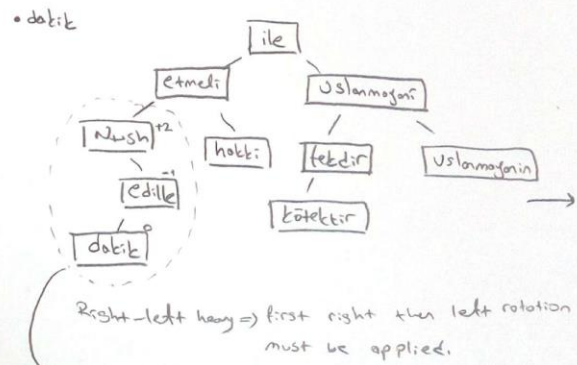 • dakik
ile
etmeli
Uslanmayani
Nush +2
hakki
tekdir
Uslanmayanin
edille -1
kötektir
dakik 0
Right-left heavy => first right then left rotation
must be applied.